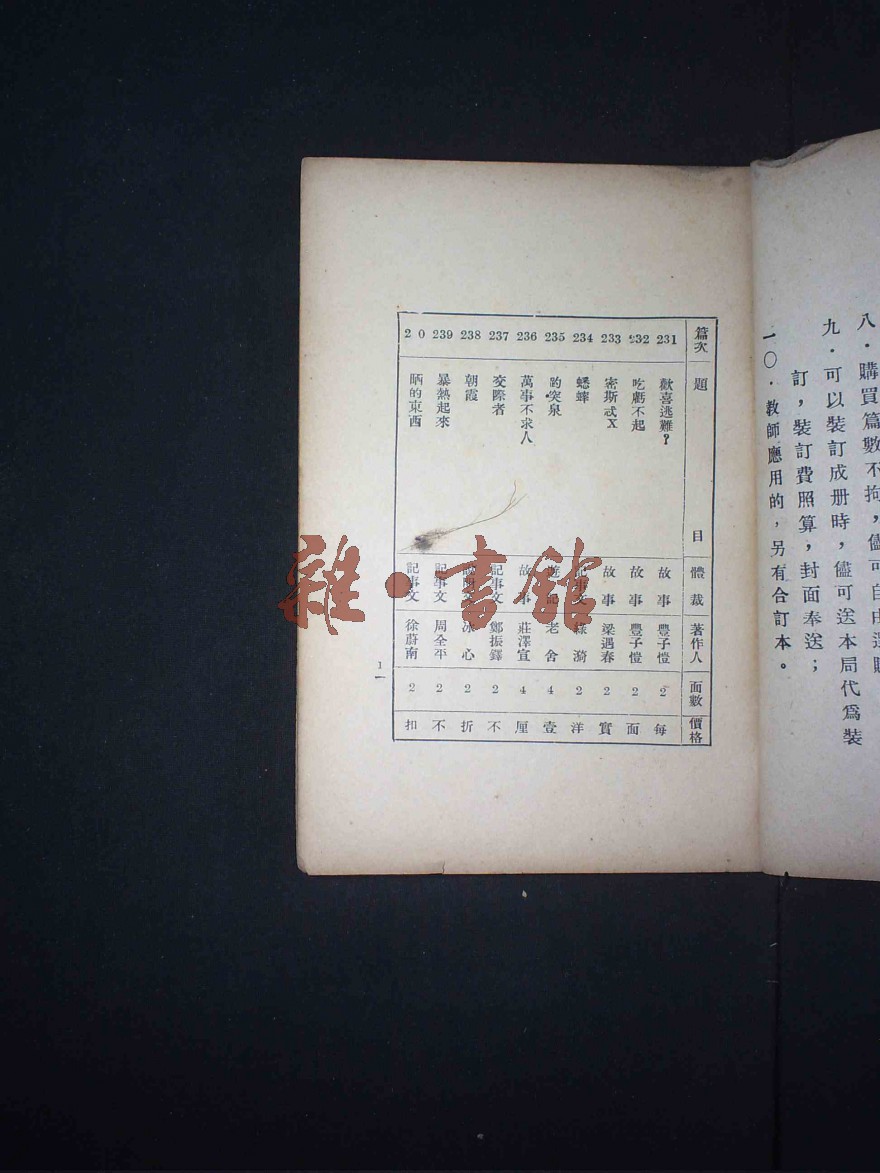 八．購買篇數不拘，儘可自由選
九．可以裝訂成册時，儘可送本局代爲裝
訂，裝訂費照算，封面奉送；
一〇．教師應用的，另有合訂本。
篇次 題目 體裁 著作人 面數 價格
231 歡喜逃難？ 故事 豐子愷 2 每
232 吃虧不起 故事 豐子愷 2 面
233 密斯忒X 故事 梁遇春 2 實
234 蟋蟀 記事文 綠漪 2 洋
235 趵突泉 遊記 老舍 4 壹
236 萬事不求人 故事 莊澤宣 4 厘
237 交際者 記事文 鄭振鐸 2 不
238 朝霞 冰心 2 折
239 暴熱起來 記事文 周全平 2 不
2 0 晒的東西 記事文 徐蔚南 2 扣
1
雜·書館